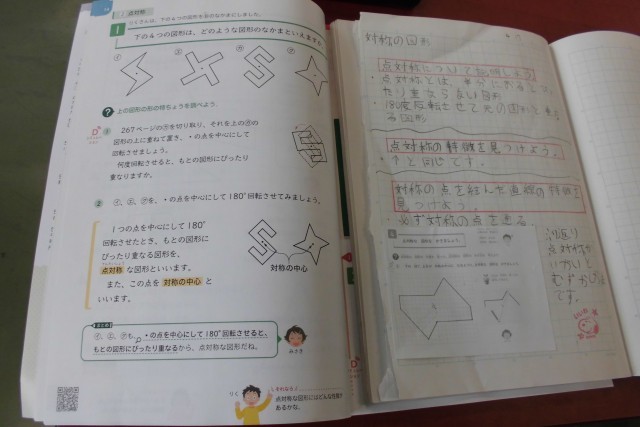 点対称
りくさんは、下の4つの図形を形のなかまにしました。
1 下の4つの図形は、どのような図形のなかまといえますか。
上の図形の形の特ちょうを調べよう。
① 267ページの㋐を切り取り、それを上の㋐の
図形の上に重ねて置き、・の点を中心にして
回転させましょう。
何度回転させると、もとの図形にぴったり
重なりますか。
② ・の点を中心にして180°回転させてみましょう。
1つの点を中心にして180°
回転させたとき、もとの図形に
ぴったり重なる図形を、
点対称な図形といいます。
また、この点を対称の中心と
いいます。
対称の中心
・の点を中心にして180°回転させると、
もとの図形にぴったり重なるから、点対称な図形だね。
みさき
りく
点対称な図形にはどんな性質が
あるかな。
対称の図形
点対称について説明しよう
180度回転させて元の図形と
る図形
点対称の特徴を見つけよう。
↑と同じです。
対称の点を結んだ直線の特徴を
見つけよう。
必ず対称の点を通る。
ふり返り
点対称が
むずかし
です。